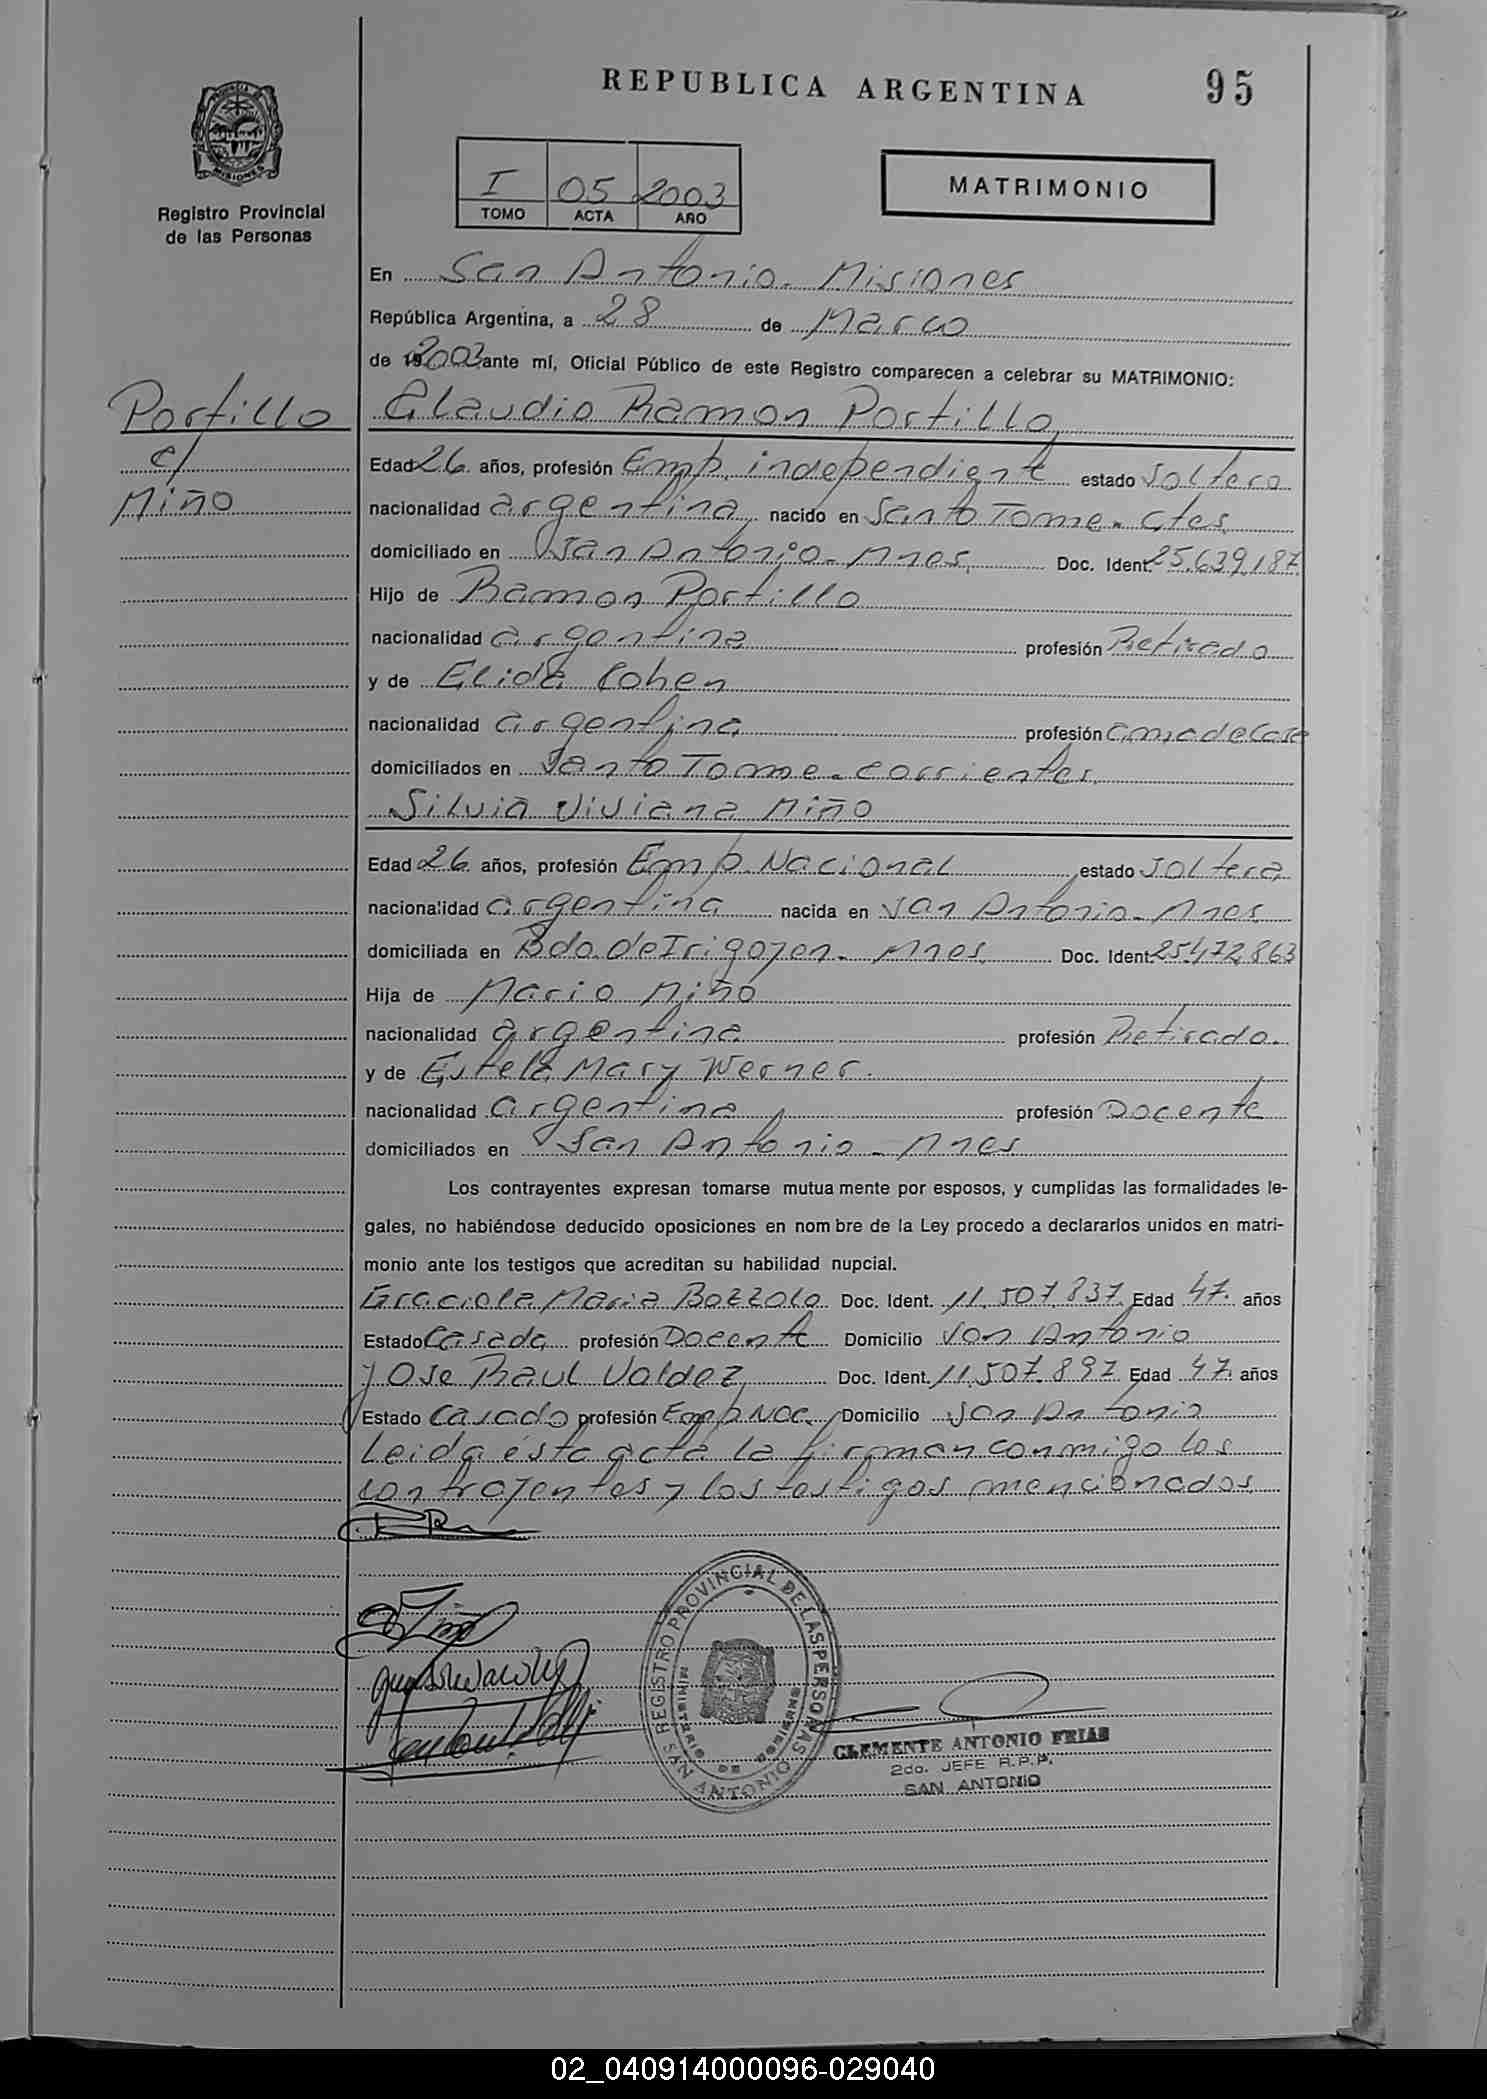 REPUBLICA ARGENTINA 95
PROVINCIA DE MISIONES
Registro Provincial
de las Personas
I 05 2003
TOMO ACTA AÑO
MATRIMONIO
En San Antonio - Misiones
República Argentina, a 28 de Marzo
de 2003 ante mí, Oficial Público de este Registro comparecen a celebrar su MATRIMONIO:
Portillo
c/
Miño
Claudio Ramon Portillo
Edad 26 años, profesión Emp. independiente estado soltero
nacionalidad argentina nacido en Santo Tome - Ctes.
domiciliado en San Antonio - Mnes. Doc. Ident. 25.639.187
Hijo de Ramon Portillo
nacionalidad argentina profesión Retirado
y de Elida Cohen
nacionalidad argentina profesión ama de casa
domiciliados en Santo Tome - Corrientes
Silvia Viviana Miño
Edad 26 años, profesión Emp. Nacional estado soltera
nacionalidad argentina nacida en San Antonio - Mnes
domiciliada en Bdo. de Irigoyen - Mnes. Doc. Ident. 25.472.863
Hija de Mario Miño
nacionalidad argentina profesión Retirado.
y de Estela Mary Werner.
nacionalidad argentina profesión Docente
domiciliados en San Antonio - Mnes
Los contrayentes expresan tomarse mutua mente por esposos, y cumplidas las formalidades le-
gales, no habiéndose deducido oposiciones en nom bre de la Ley procedo a declararlos unidos en matri-
monio ante los testigos que acreditan su habilidad nupcial.
Graciela Maria Bozzolo Doc. Ident. 11.507.837 Edad 47 años
Estado Casada profesión Docente Domicilio San Antonio
Jose Raul Valdez Doc. Ident. 11.507.897 Edad 47 años
Estado Casado profesión Emp. Nac. Domicilio San Antonio
Leida ésta acta la firman conmigo los
contrayentes y los testigos mencionados
REGISTRO PROVINCIAL DE LAS PERSONAS
MINISTERIO DE GOBIERNO
SAN ANTONIO
CLEMENTE ANTONIO FRIAS
2do. JEFE R.P.P.
SAN ANTONIO
02_040914000096-029040